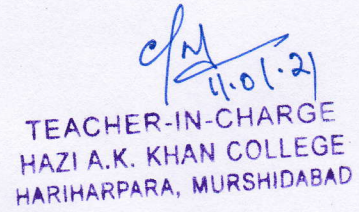 11.01.21
TEACHER-IN-CHARGE
HAZI A.K. KHAN COLLEGE
HARIHARPARA, MURSHIDABAD